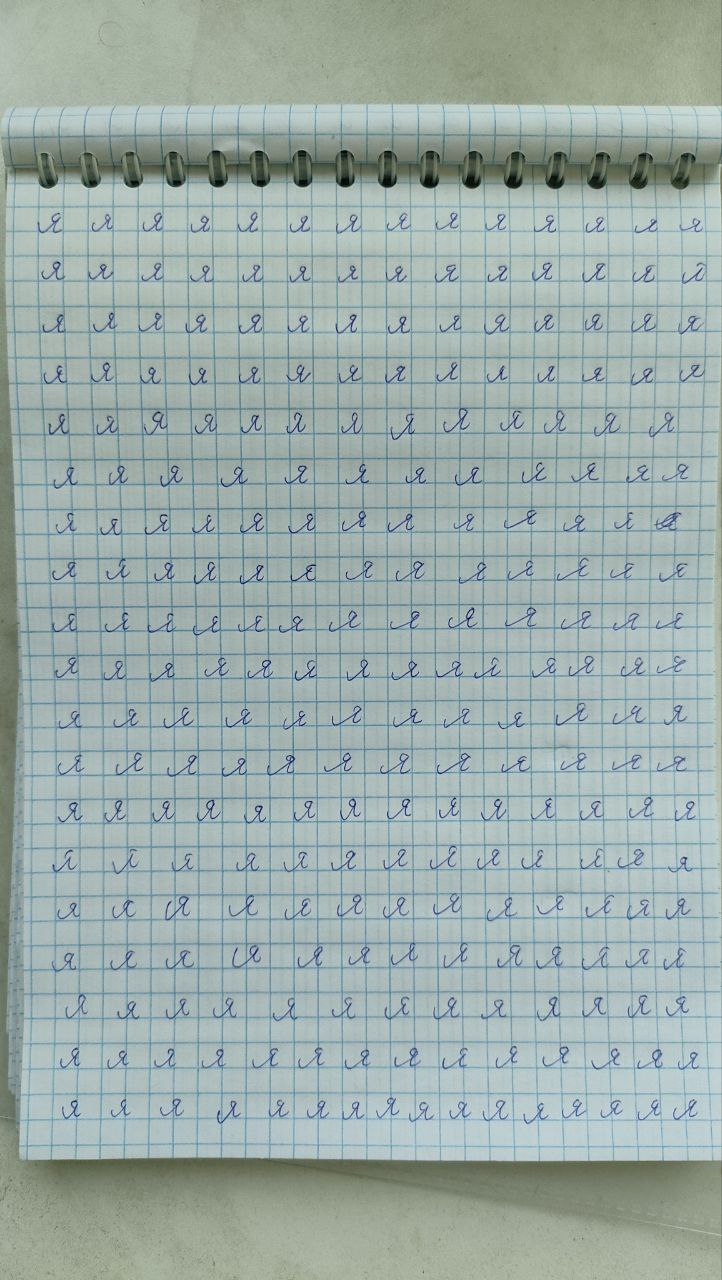 я я я я я я я я я я я я я я
я я я я я я я я я я я я я я
я я я я я я я я я я я я я я
я я я я я я я я я я я я я я
я я я я я я я я я я я я я
я я я я я я я я я я я я
я я я я я я я я я я я я
я я я я я я я я я я я я я
я я я я я я я я я я я я я
я я я я я я я я я я я я я я
я я я я я я я я я я я я
я я я я я я я я я я я я
я я я я я я я я я я я я я я
я я я я я я я я я я я я я
я я я я я я я я я я я я я
я я я я я я я я я я я я я
я я я я я я я я я я я я я
я я я я я я я я я я я я я я
я я я я я я я я я я я я я я я я